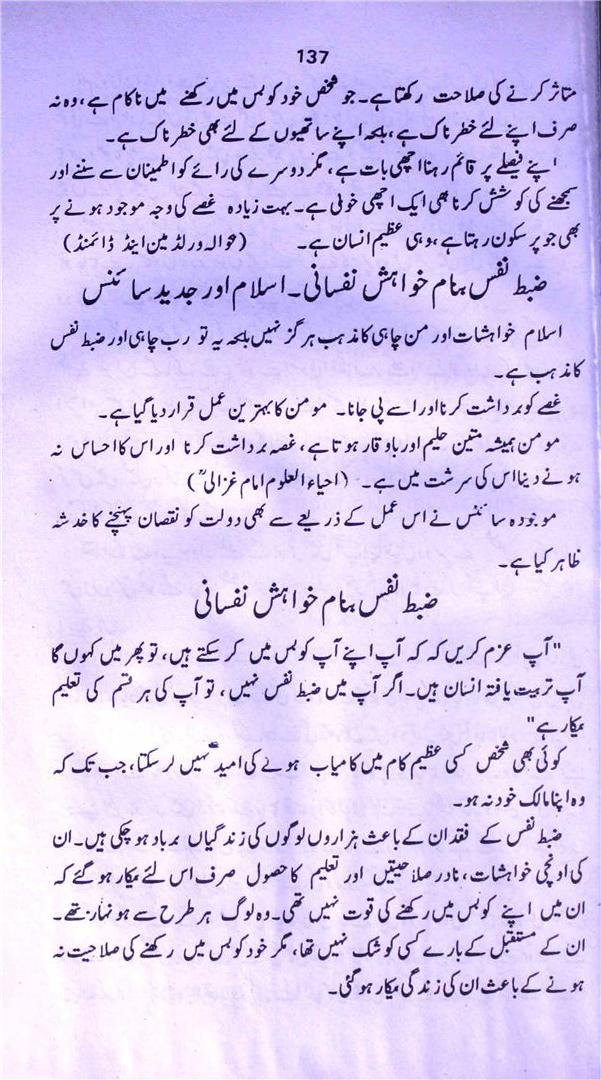 137
متاثر کرنے کی صلاحت رکھتا ہے۔ جو شخص خود کو بس میں رکھنے میں ناکام ہے، وہ نہ
صرف اپنے لئے خطرناک ہے، بلکہ اپنے ساتھیوں کے لئے بھی خطرناک ہے۔
اپنے فیصلے پر قائم رہنا اچھی بات ہے، مگر دوسرے کی رائے کو اطمینان سے سننے اور
سمجھنے کی کوشش کرنا بھی ایک اچھی خوبی ہے۔ بہت زیادہ غصے کی وجہ موجود ہونے پر
بھی جو پر سکون رہتا ہے، وہی عظیم انسان ہے۔ (حوالہ ورلڈ مین اینڈ ڈائمنڈ)
ضبط نفس بنام خواہش نفسانی۔ اسلام اور جدید سائنس
اسلام خواہشات اور من چاہی کا مذہب ہر گز نہیں بلکہ یہ تو رب چاہی اور ضبط نفس
کا مذہب ہے۔
غصے کو برداشت کرنا اور اسے پی جانا۔ مومن کا بہترین عمل قرار دیا گیا ہے۔
مومن ہمیشہ متین حلیم اور باوقار ہوتا ہے، غصہ برداشت کرنا اور اس کا احساس نہ
ہونے دینا اس کی سرشت میں ہے۔ (احیاء العلوم امام غزالیؒ)
موجودہ سائنس نے اس عمل کے ذریعے سے بھی دولت کو نقصان پہنچنے کا خدشہ
ظاہر کیا ہے۔
ضبط نفس بنام خواہش نفسانی
"آپ عزم کریں کہ کہ آپ اپنے آپ کو بس میں کر سکتے ہیں، تو پھر میں کہوں گا
آپ تربیت یافتہ انسان ہیں۔ اگر آپ میں ضبط نفس نہیں، تو آپ کی ہر قسم کی تعلیم
بیکار ہے"
کوئی بھی شخص کسی عظیم کام میں کامیاب ہونے کی امید نہیں کر سکتا، جب تک کہ
وہ اپنا مالک خود نہ ہو۔
ضبط نفس کے فقدان کے باعث ہزاروں لوگوں کی زندگیاں برباد ہو چکی ہیں۔ ان
کی اونچی خواہشات، نادر صلاحیتیں اور تعلیم کا حصول صرف اس لئے بیکار ہو گئے کہ
ان میں اپنے کو بس میں رکھنے کی قوت نہیں تھی۔ وہ لوگ ہر طرح سے ہونہار تھے۔
ان کے مستقبل کے بارے کسی کو شک نہیں تھا، مگر خود کو بس میں رکھنے کی صلاحیت نہ
ہونے کے باعث ان کی زندگی بیکار ہو گئی۔